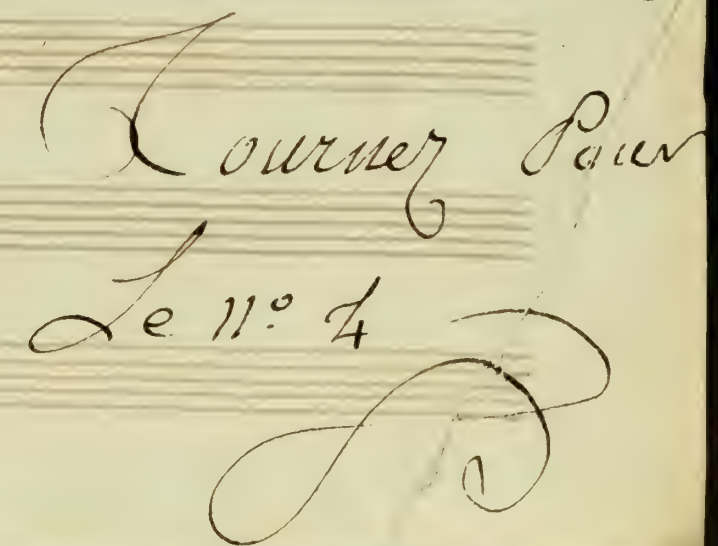 Tournez Pour
Le nº 4